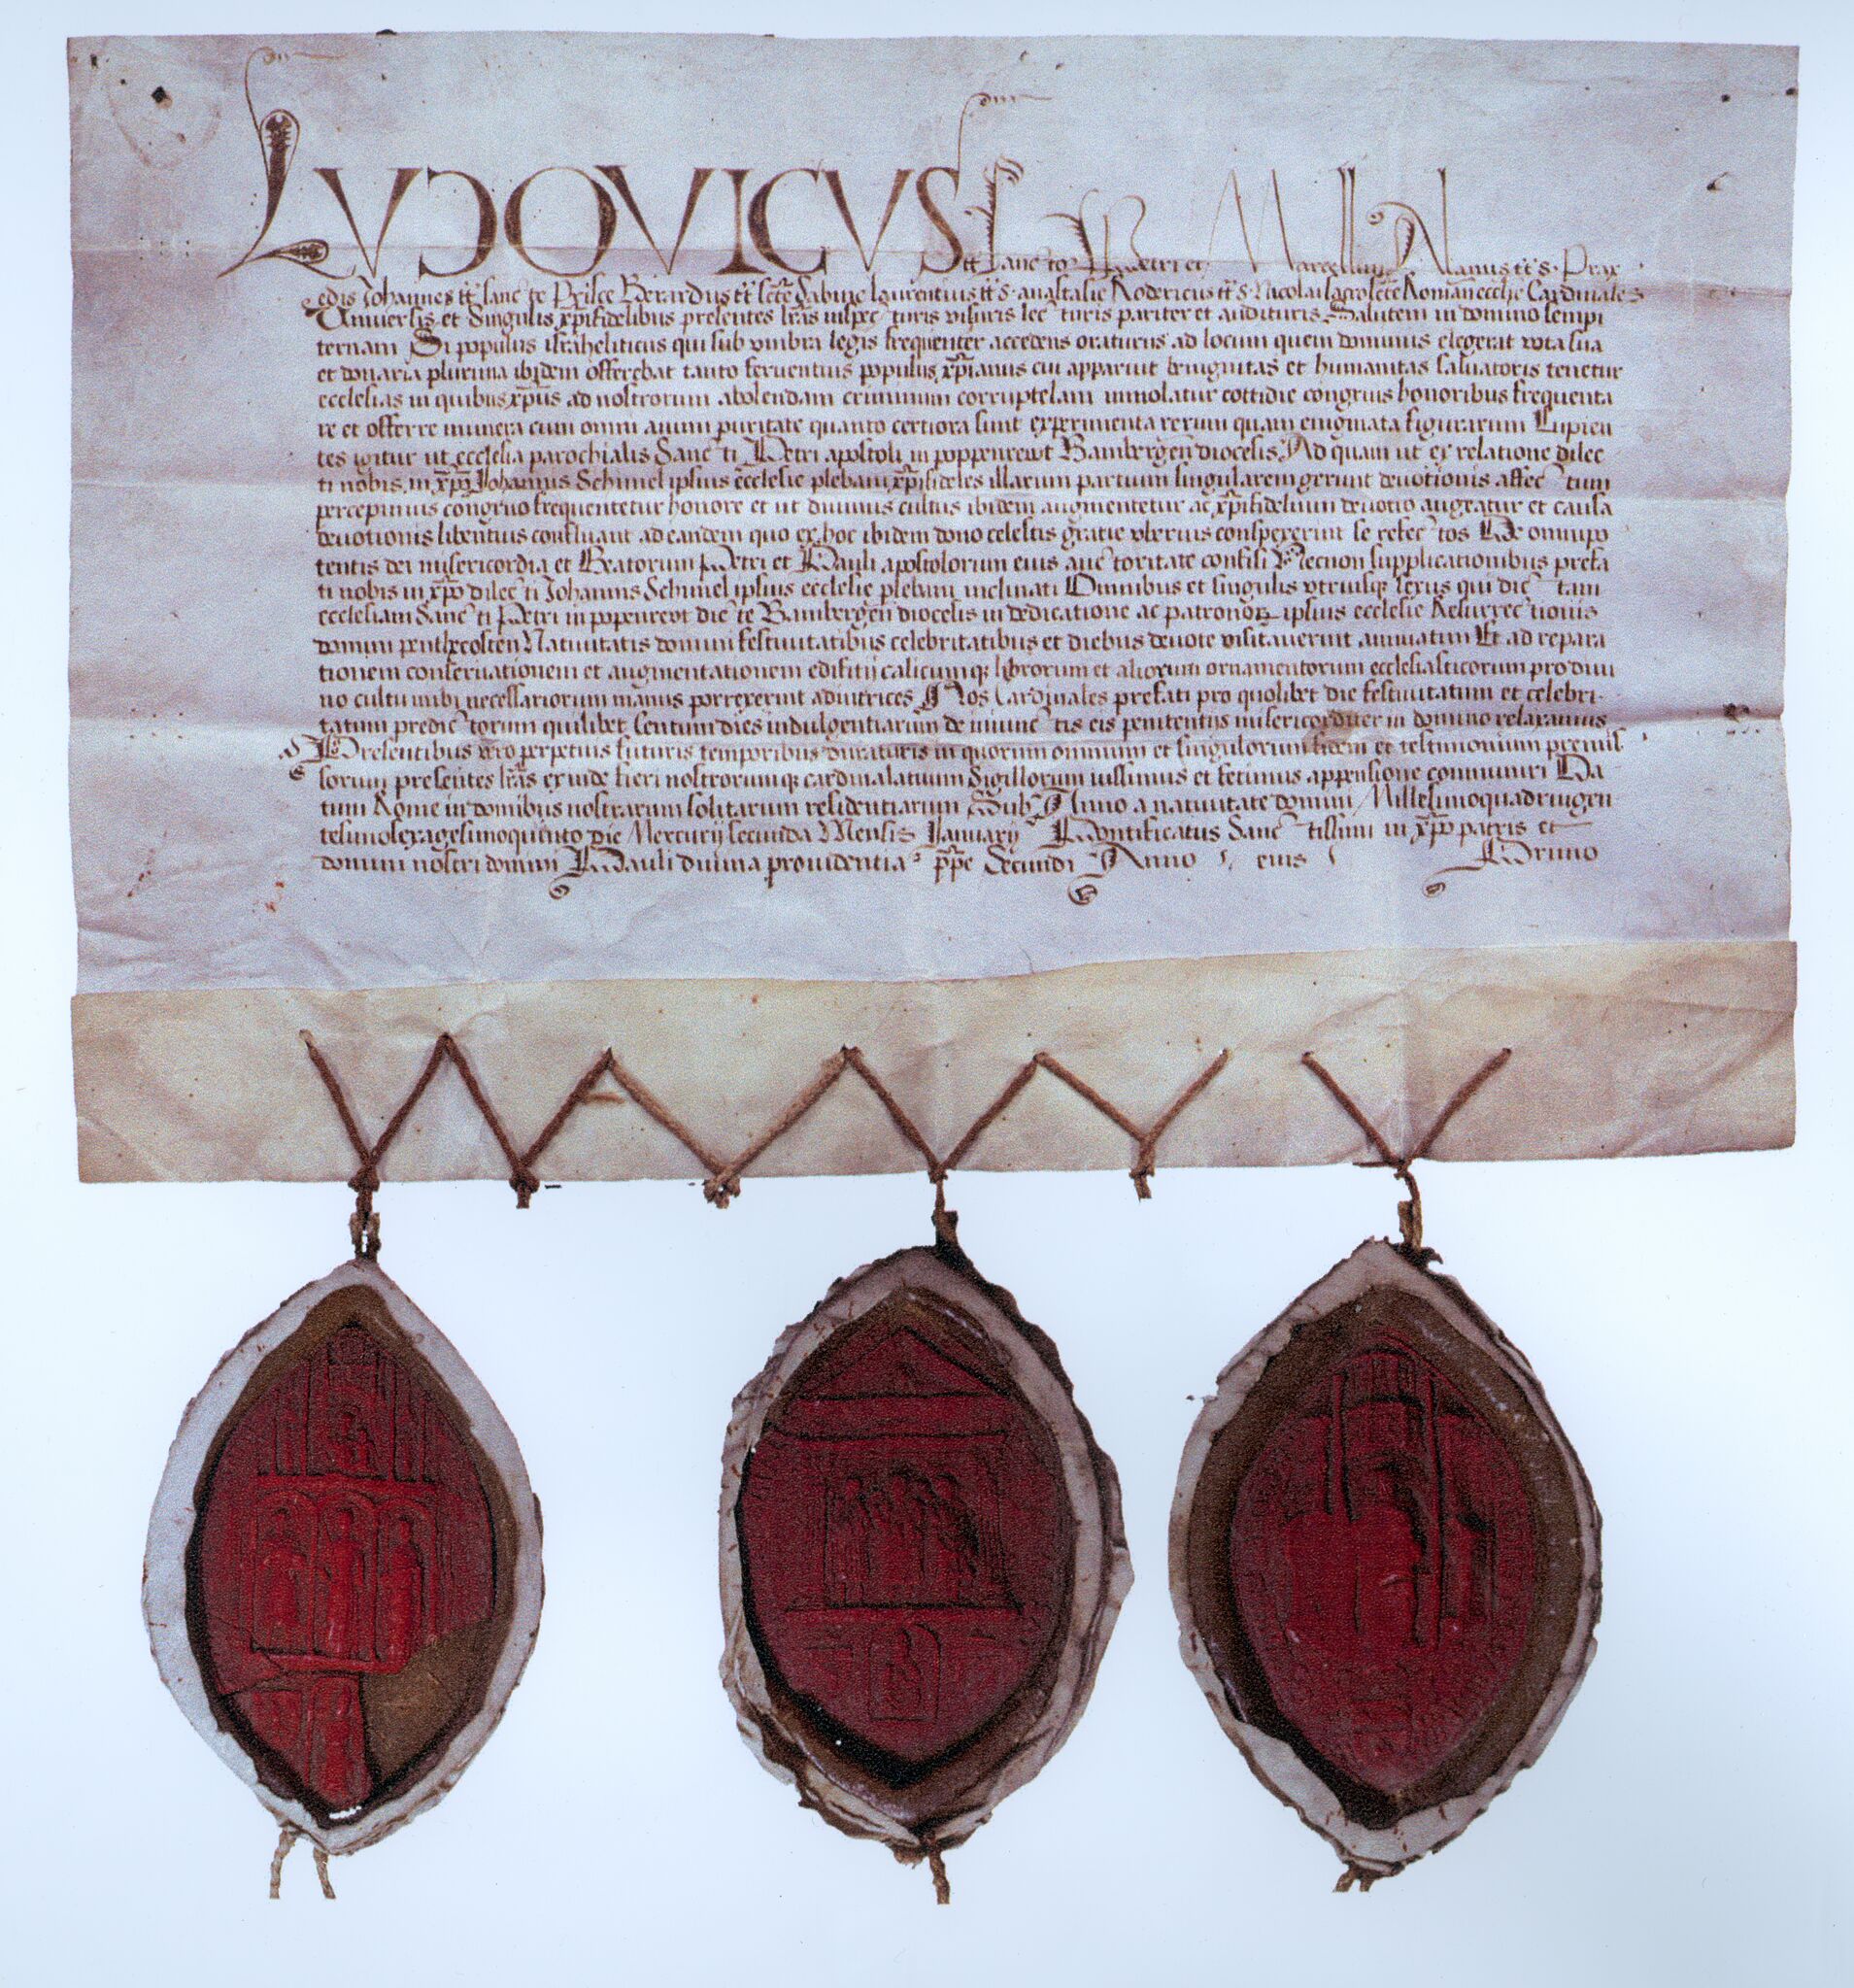 LUDOVICUS tt̃ Sanctorum Petri et Marcellini Alanus tt̃ s. Prax
edis Johannes tt̃ sancte Prisce Berardus tt̃ sct̃e Sabine laurentius tt̃ s. anastasie Rodericus tt̃ s. Nicolai sacroscte Roman ecclie Cardinales
Universis et Singulis xp̃ifidelibus presentes lr̃as inspecturis visuris lecturis pariter et audituris Salutem in domino sempi
ternam Si populus israheliticus qui sub umbra legis frequenter accedens oraturus ad locum quem dominus elegerat vota sua
et donaria plurima ibidem offerebat tanto ferventius populus xp̃ianus cui apparuit benignitas et humanitas salvatoris tenetur
ecclesias in quibus xp̃us ad nostrorum abolendam criminum corruptelam immolatur cottidie congruis honoribus frequenta
re et offerre munera cum omni animi puritate quanto certiora sunt experimenta rerum quam enigmata figurarum Cupien
tes igitur ut ecclesia parochialis Sancti Petri apostoli in poppenrewt Bambergen̄ diocesis Ad quam ut ex relatione dilec
ti nobis in xp̃o Johannis Schimel ipsius ecclesie plebani xp̃ifideles illarum partium singularem gerunt devotionis affectum
percepimus congruo frequentetur honore et ut divinus cultus ibidem augmentetur ac xp̃ifidelium devotio augeatur et causa
devotionis libentius confluant ad eandem quo ex hoc ibidem dono celestis gratie uberius conspexerint se refectos De omnipo
tentis dei misericordia et Beatorum Petri et Pauli apostolorum eius auctoritate confisi Necnon supplicationibus prefa
ti nobis in xp̃o dilecti Johannis Schimel ipsius ecclesie plebani inclinati Omnibus et singulis utriusq; sexus qui dictam
ecclesiam Sancti Petri in poppenrewt dicte Bambergen̄ diocesis in dedicatione ac patronorꝫ ipsius ecclesie Resurrectionis
domini penthecosten Nativitatis domini festivitatibus celebritatibus et diebus devote visitaverint annuatim Et ad repara
tionem conservationem et augmentationem edifitij calicumq; librorum et aliorum ornamentorum ecclesiasticorum pro divi
no cultu inibi necessariorum manus porrexerint adiutrices Nos Cardinales prefati pro quolibet die festivitatum et celebri
tatum predictorum quilibet Centum dies indulgentiarum de iniunctis eis penitentiis misericorditer in domino relaxamus
Presentibus vero perpetuis futuris temporibus duraturis in quorum omnium et singulorum fidem et testimonium premis
sorum presentes lr̃as exinde fieri nostrorumq; cardinalatuum Sigillorum iussimus et fecimus appensione communiri Da
tum Rome in domibus nostrarum solitarum residentiarum Sub Anno a nativitate domini Millesimoquadringen
tesimosexagesimoquinto die Mercurij secunda Mensis Januarij Pontificatus Sanctissimi in xp̃o patris et
domini nostri domini Pauli divina providentia pp̃e Secundi Anno eius Primo